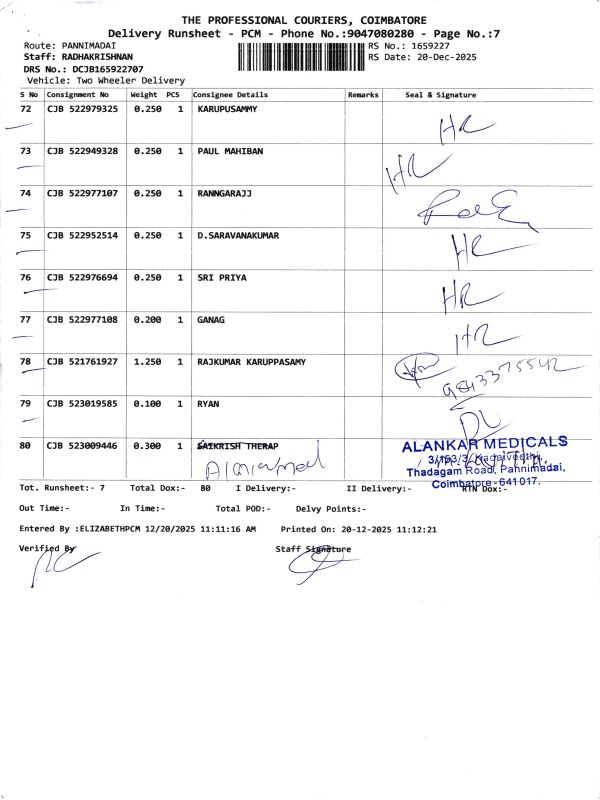 THE PROFESSIONAL COURIERS, COIMBATORE
Delivery Runsheet - PCM - Phone No.:9047080280 - Page No.:7
Route: PANNIMADAI RS No.: 1659227
Staff: RADHAKRISHNAN RS Date: 20-Dec-2025
DRS No.: DCJB165922707
Vehicle: Two Wheeler Delivery
S No Consignment No Weight PCS Consignee Details Remarks Seal & Signature
72 CJB 522979325 0.250 1 KARUPUSAMMY HR
73 CJB 522949328 0.250 1 PAUL MAHIBAN HR
74 CJB 522977107 0.250 1 RANNGARAJJ
75 CJB 522952514 0.250 1 D.SARAVANAKUMAR HR
76 CJB 522976694 0.250 1 SRI PRIYA HR
77 CJB 522977108 0.200 1 GANAG HR
78 CJB 521761927 1.250 1 RAJKUMAR KARUPPASAMY 9843375542
79 CJB 523019585 0.100 1 RYAN DL
80 CJB 523009446 0.300 1 SAIKRISH THERAP
ALANKAR MEDICALS
3/163/3,
Thadagam Road, Pannimadai,
Coimbatore-641017.
Tot. Runsheet:- 7 Total Dox:- 80 I Delivery:- II Delivery:- RTN Dox:-
Out Time:- In Time:- Total POD:- Delvy Points:-
Entered By :ELIZABETHPCM 12/20/2025 11:11:16 AM Printed On: 20-12-2025 11:12:21
Verified By Staff Signature